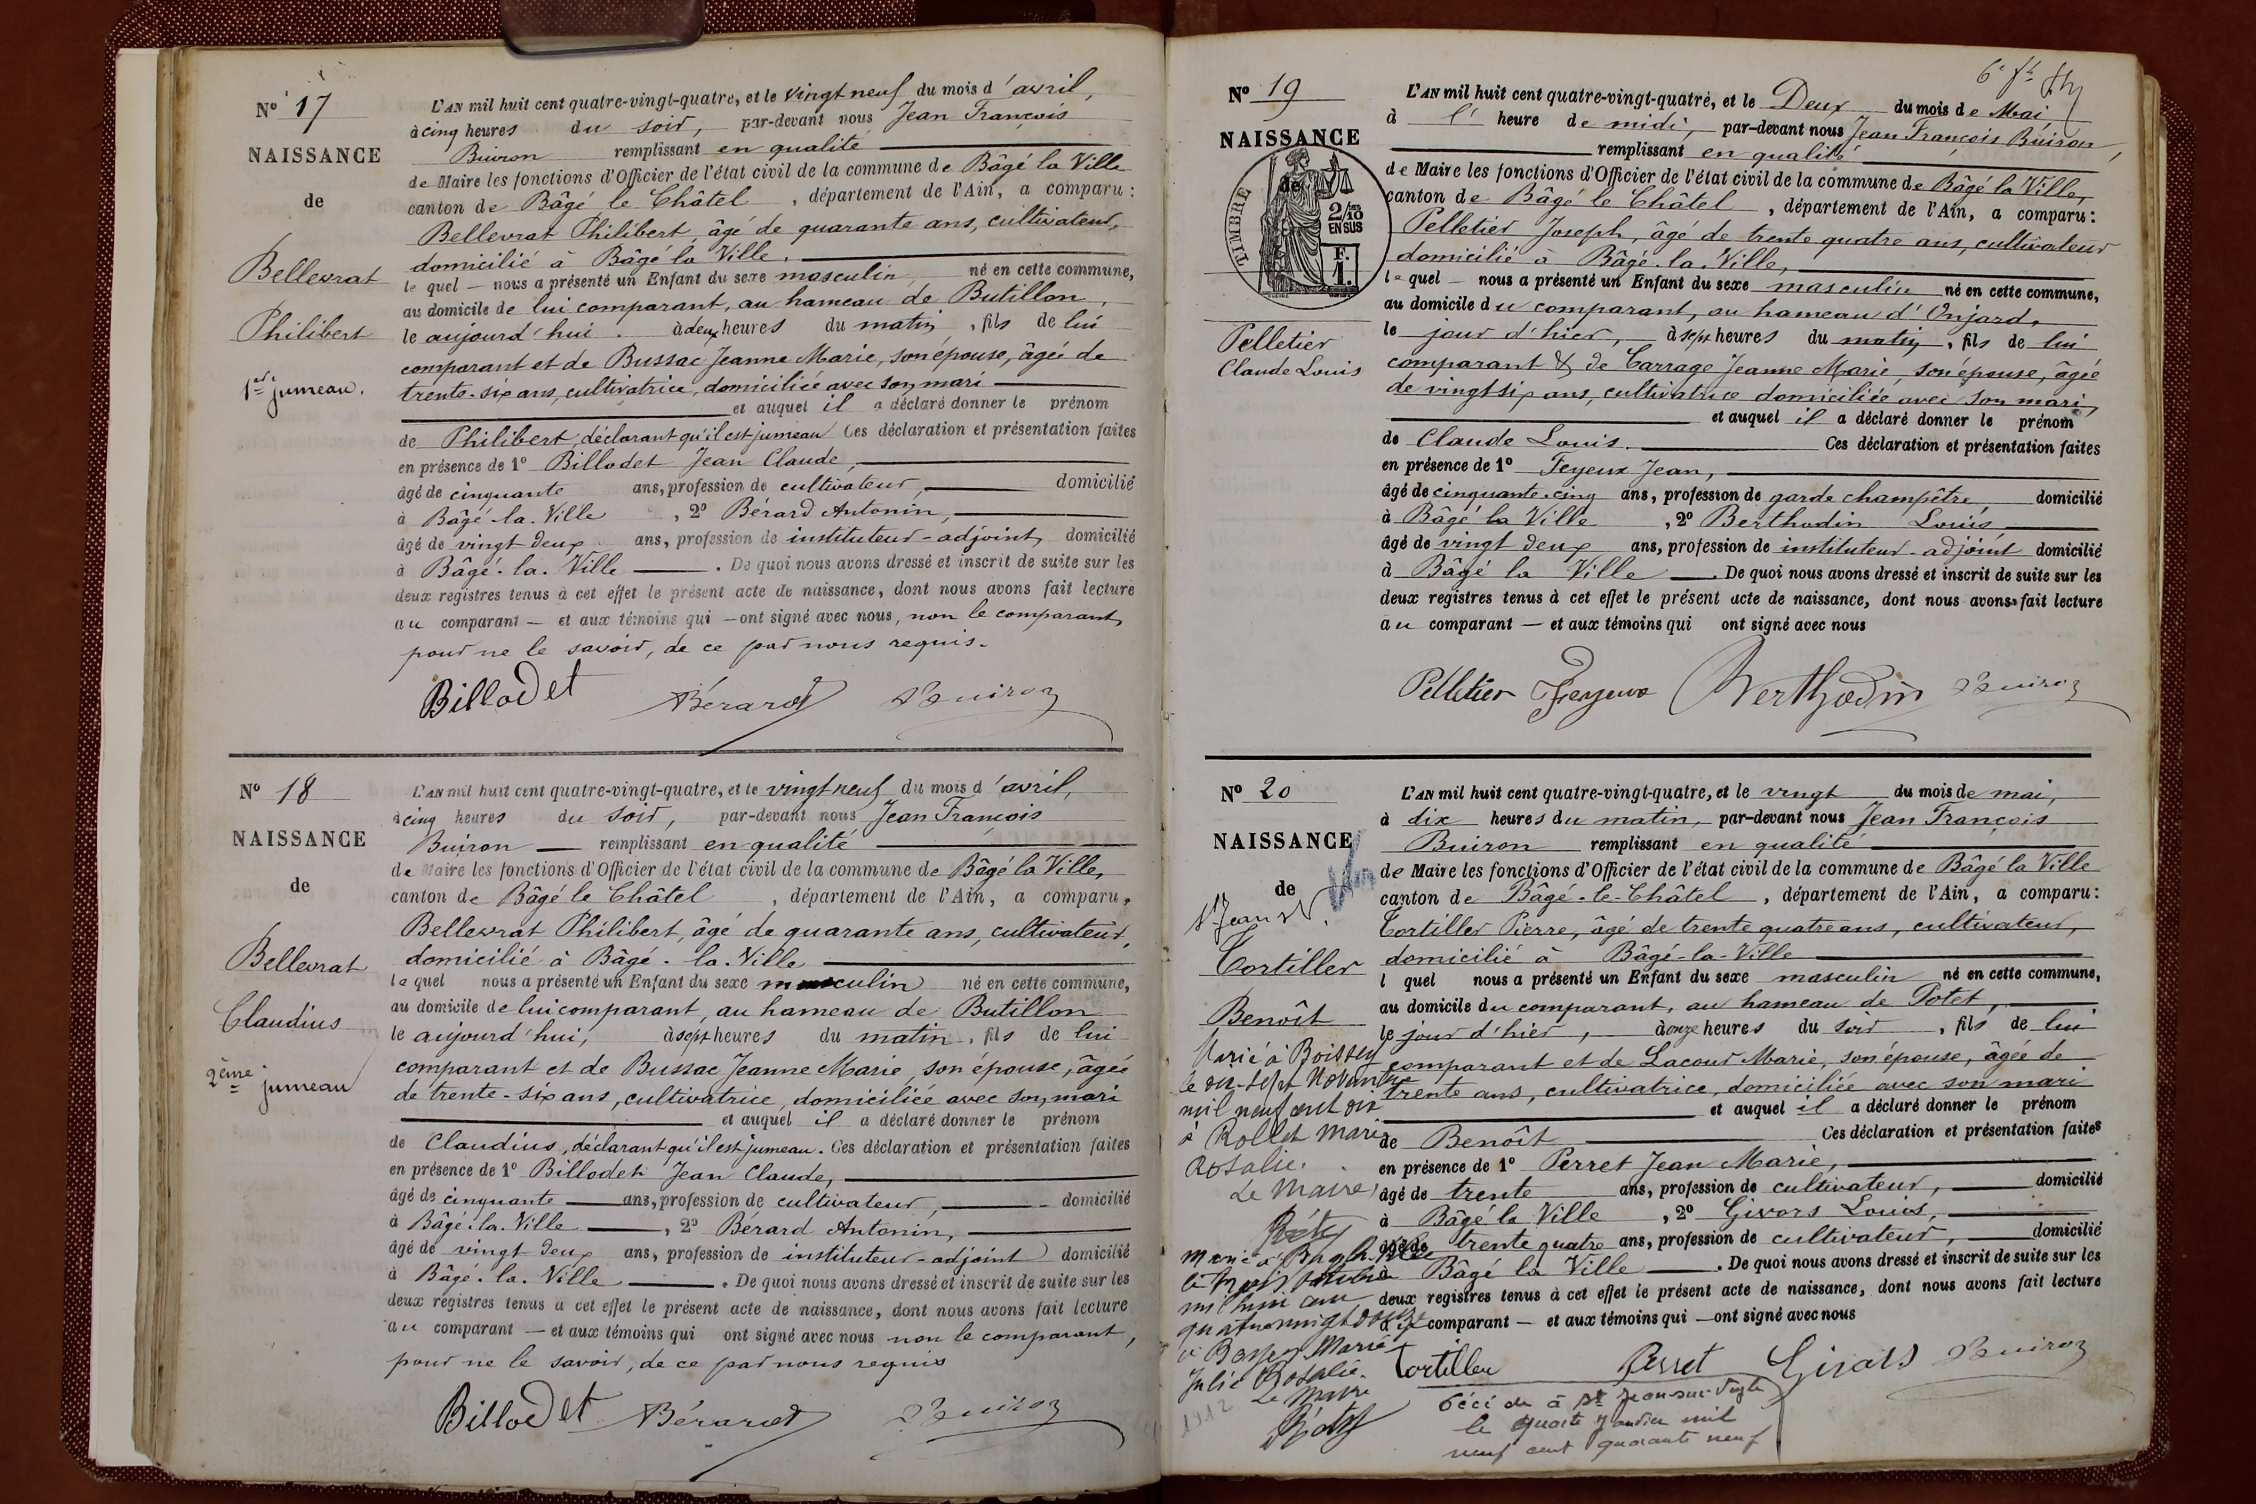 Nº 17
NAISSANCE
de
Bellevrat
Philibert
1er jumeau.
L'AN mil huit cent quatre-vingt-quatre, et le vingt neuf du mois d'avril,
à cinq heures du soir, par-devant nous Jean François
Buiron remplissant en qualité
de Maire les fonctions d'Officier de l'état civil de la commune de Bâgé la Ville
canton de Bâgé le Châtel, département de l'Ain, a comparu :
Bellevrat Philibert, âgé de quarante ans, cultivateur,
domicilié à Bâgé la Ville.
lequel — nous a présenté un Enfant du sexe masculin, né en cette commune,
au domicile de lui comparant, au hameau de Butillon,
le aujourd'hui. à deux heures du matin, fils de lui
comparant et de Bussac Jeanne Marie, son épouse, âgée de
trente-six ans, cultivatrice, domiciliée avec son mari —
et auquel il a déclaré donner le prénom
de Philibert, déclarant qu'il est jumeau Ces déclaration et présentation faites
en présence de 1º Billodet Jean Claude,
âgé de cinquante ans, profession de cultivateur, domicilié
à Bâgé-la-Ville, 2º Bérard Antonin,
âgé de vingt deux ans, profession de instituteur-adjoint, domicilié
à Bâgé-la-Ville —. De quoi nous avons dressé et inscrit de suite sur les
deux registres tenus à cet effet le présent acte de naissance, dont nous avons fait lecture
au comparant — et aux témoins qui — ont signé avec nous, non le comparant,
pour ne le savoir, de ce par nous requis.
Billodet Bérard Buiron
Nº 18
NAISSANCE
de
Bellevrat
Claudius
2ème jumeau
L'AN mil huit cent quatre-vingt-quatre, et le vingt neuf du mois d'avril,
à cinq heures du soir, par-devant nous Jean François
Buiron — remplissant en qualité
de Maire les fonctions d'Officier de l'état civil de la commune de Bâgé la Ville,
canton de Bâgé le Châtel, département de l'Ain, a comparu,
Bellevrat Philibert, âgé de quarante ans, cultivateur,
domicilié à Bâgé-la-Ville
lequel nous a présenté un Enfant du sexe masculin né en cette commune,
au domicile de lui comparant, au hameau de Butillon
le aujourd'hui, à sept heures du matin, fils de lui
comparant et de Bussac Jeanne Marie, son épouse, âgée
de trente-six ans, cultivatrice, domiciliée avec son mari
et auquel il a déclaré donner le prénom
de Claudius, déclarant qu'il est jumeau. Ces déclaration et présentation faites
en présence de 1º Billodet Jean Claude,
âgé de cinquante — ans, profession de cultivateur, — domicilié
à Bâgé-la-Ville —, 2º Bérard Antonin,
âgé de vingt deux ans, profession de instituteur-adjoint domicilié
à Bâgé-la-Ville —. De quoi nous avons dressé et inscrit de suite sur les
deux registres tenus à cet effet le présent acte de naissance, dont nous avons fait lecture
au comparant — et aux témoins qui ont signé avec nous non le comparant,
pour ne le savoir, de ce par nous requis
Billodet Bérard Buiron
6e
Nº 19
NAISSANCE
de
TIMBRE
2/10
EN SUS
F.
1.
Pelletier
Claude Louis
L'AN mil huit cent quatre-vingt-quatre, et le Deux du mois de Mai,
à l' heure de midi, par-devant nous Jean François Buiron,
remplissant en qualité
de Maire les fonctions d'Officier de l'état civil de la commune de Bâgé la Ville,
canton de Bâgé le Châtel, département de l'Ain, a comparu :
Pelletier Joseph, âgé de trente quatre ans, cultivateur
domicilié à Bâgé-la-Ville,
lequel — nous a présenté un Enfant du sexe masculin né en cette commune,
au domicile du comparant, au hameau d'Onjard,
le jour d'hier, à sept heures du matin, fils de lui
comparant & de Carrage Jeanne Marie, son épouse, âgée
de vingt six ans, cultivatrice domiciliée avec son mari,
et auquel il a déclaré donner le prénom
de Claude Louis. Ces déclaration et présentation faites
en présence de 1º Feyeux Jean,
âgé de cinquante-cinq ans, profession de garde champêtre, domicilié
à Bâgé la Ville, 2º Berthodin Louis
âgé de vingt deux ans, profession de instituteur-adjoint domicilié
à Bâgé la Ville —. De quoi nous avons dressé et inscrit de suite sur les
deux registres tenus à cet effet le présent acte de naissance, dont nous avons fait lecture
au comparant — et aux témoins qui ont signé avec nous
Pelletier Feyeux Berthodin Buiron
Nº 20
NAISSANCE
de
St Jean s/V.
Tortiller
Benoît
Marié à Boissey
le dix-sept Novembre
mil neuf cent dix
à Rollet Marie
Rosalie.
Le Maire,
Marié à
mil
quatre vingt
Marie
Julie Rosalie.
Le Maire
1912
L'AN mil huit cent quatre-vingt-quatre, et le vingt du mois de mai,
à dix heures du matin, par-devant nous Jean François
Buiron remplissant en qualité
de Maire les fonctions d'Officier de l'état civil de la commune de Bâgé la Ville
canton de Bâgé-le-Châtel, département de l'Ain, a comparu :
Tortiller Pierre, âgé de trente quatre ans, cultivateur,
domicilié à Bâgé-la-Ville
l quel nous a présenté un Enfant du sexe masculin né en cette commune,
au domicile du comparant, au hameau de Potet,
le jour d'hier, à onze heures du soir, fils de lui
comparant et de Lacour Marie, son épouse, âgée de
trente ans, cultivatrice, domiciliée avec son mari
et auquel il a déclaré donner le prénom
de Benoît Ces déclaration et présentation faites
en présence de 1º Perret Jean Marie,
âgé de trente ans, profession de cultivateur, domicilié
à Bâgé la Ville, 2º Givors Louis,
âgé de trente quatre ans, profession de cultivateur, domicilié
à Bâgé la Ville —. De quoi nous avons dressé et inscrit de suite sur les
deux registres tenus à cet effet le présent acte de naissance, dont nous avons fait lecture
au comparant — et aux témoins qui — ont signé avec nous
Tortiller Perret Givors Buiron
Décédé à St Jean-sur-Veyle
le quatre Janvier mil
neuf cent quarante neuf